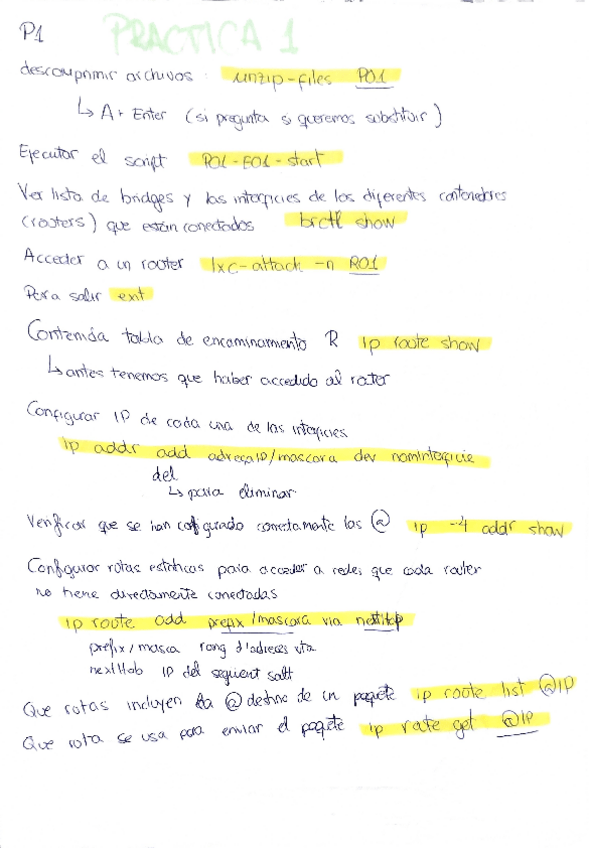 P1
PRACTICA 1
descomprimir archivos : unzip-files P01
↳ A + Enter (si pregunta si queremos substituir)
Ejecutar el script P01-E01-start
Ver lista de bridges y las interficies de los diferentes contenedores
(routers) que están conectados brctl show
Acceder a un router lxc-attach -n R01
Para salir exit
Contenida tabla de encaminamiento R ip route show
↳ antes tenemos que haber accedido al router
Configurar IP de cada una de las interficies
ip addr add adreçaIP/mascara dev nomInterficie
del
↳ para eliminar
Verificar que se han configurado correctamente las @ ip -4 addr show
Configurar rutas estáticas para acceder a redes que cada router
no tiene directamente conectadas
ip route add prefix/mascara via nextHop
prefix/masca rang d'adreces
nextHob IP del seguent salt
Que rutas incluyen la @ destino de un paquete ip route list @IP
Que ruta se usa para enviar el paquete ip route get @IP